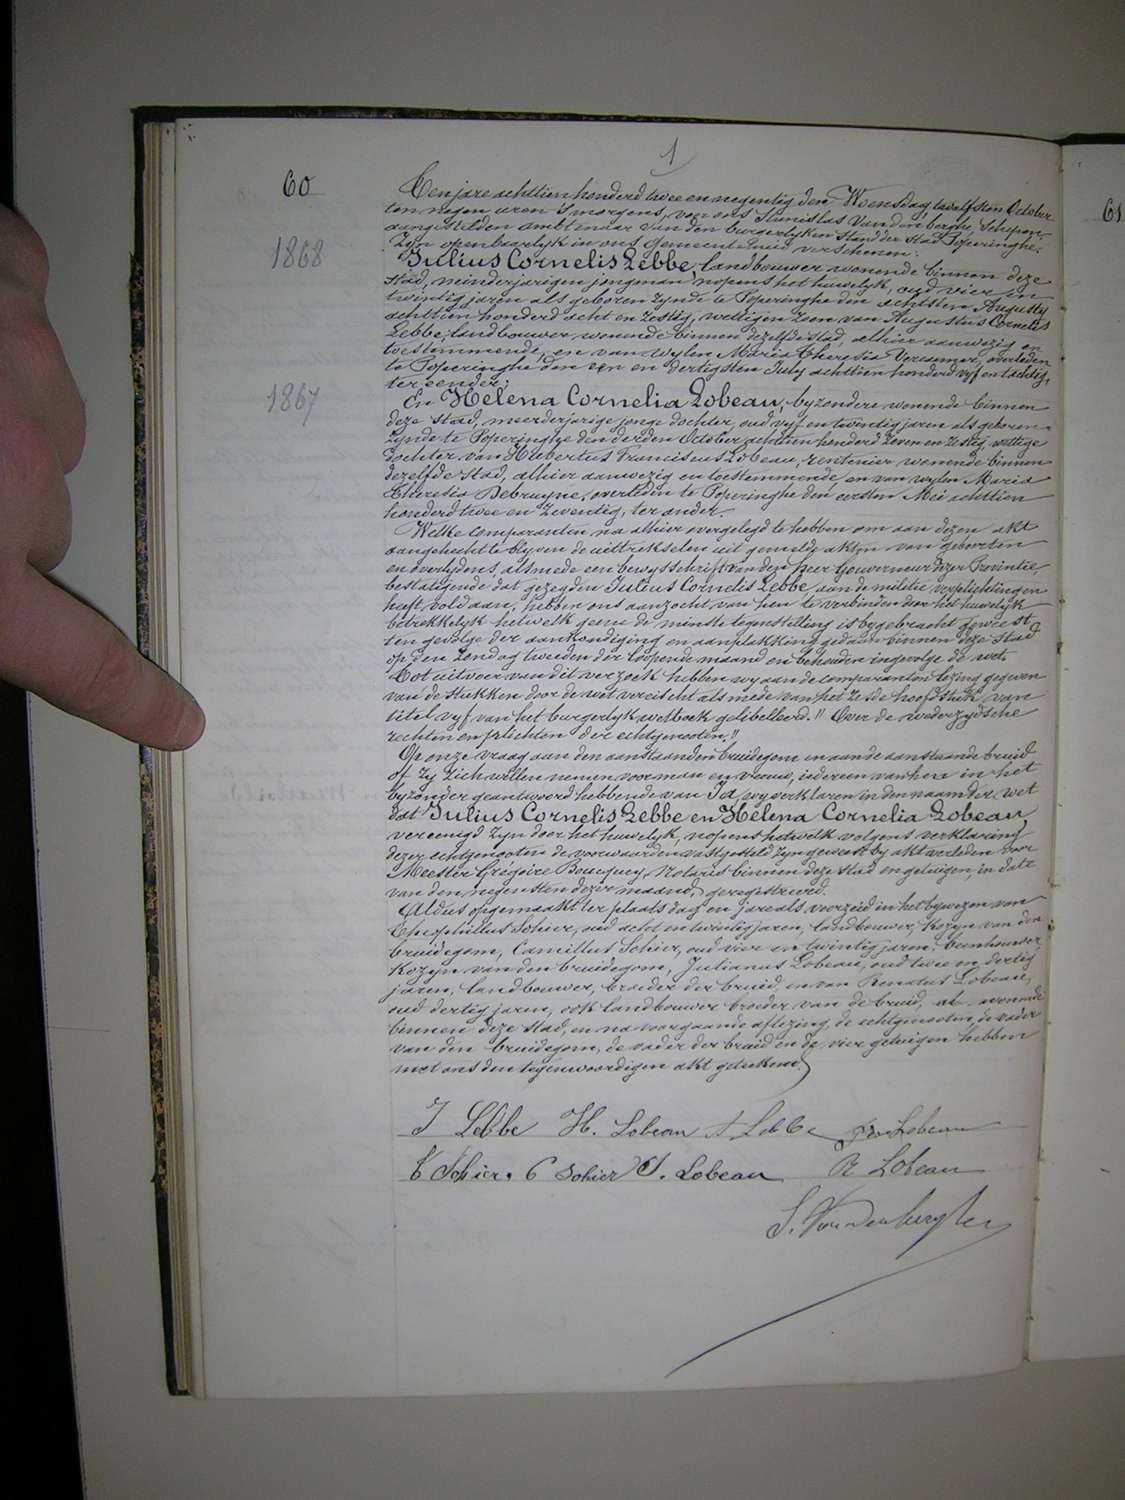 1
60
61
Ten jare achttien honderd twee en negentig den Woensdag twalfsten October
ten negen uren 's morgens, voor ons Stanislas Vandenberghe, Schepen,
aangestelden ambtenaar van den burgerlyken stand der stad Poperinghe,
Zyn openbaarlyk in ons Gemeentehuis verschenen:
1868
Julius Cornelis Lebbe, landbouwer wonende binnen deze
stad, minderjarigen jongman nopens het huwelyk, oud vier en
twintig jaren als geboren zynde te Poperinghe den achtsten Augusty
achttien honderd acht en zestig, wettigen zoon van Augustus Cornelis
Lebbe, landbouwer, wonende binnen dezelfde stad, alhier aanwezig en
toestemmende, en van wylen Maria Theresia Vereammer, overleden
te Poperinghe den een en dertigsten July achttien honderd vyf en tachtig,
ter eender;
1867
En Helena Cornelia Lobeau, byzondere wonende binnen
deze stad, meerderjarige jonge dochter, oud vyf en twintig jaren als geboren
zynde te Poperinghe den derden October achttien honderd zeven en zestig, wettige
dochter van Hubertus Franciscus Lobeau, rentenier wonende binnen
dezelfde stad, alhier aanwezig en toestemmende, en van wylen Maria
Theresia Debruyne, overleden te Poperinghe den eersten Mei achttien
honderd twee en zeventig, ter ander.
Welke comparanten, na alhier overgelegd te hebben om aan dezen akt
aangehecht te blyven de uittrekselen uit gemelde akten van geboorten
en overlydens, alsmede een bewysschrift van den heer Gouverneur dezer Provintie,
bestatigende dat gezegden Julius Cornelis Lebbe, aan de militie verplichtingen
heeft voldaan, hebben ons aanzocht van hen te verbinden door het huwelyk
betrekkelyk hetwelk geene de minste tegenstelling is bygebracht geweest
ten gevolge der aankondiging en aanplakking gedaan binnen deze stad
op den Zondag tweeden der loopende maand en behouden ingevolge de wet.
Tot uitvoer van dit verzoek hebben wy aan de comparanten lezing gegeven
van de stukken door de wet vereischt alsmede van het zesde hoofdstuk van
titel vyf van het burgerlyk wetboek gelibelleerd "Over de wederzydsche
rechten en plichten der echtgenooten."
Op onze vraag aan den aanstaanden bruidegom en aan de aanstaande bruid
of zy zich willen nemen voor man en vrouw, iedereen van hen in het
byzonder geantwoord hebbende van Ja, wy verklaren in den naam der wet
dat Julius Cornelis Lebbe en Helena Cornelia Lobeau,
vereenigd zyn door het huwelyk, nopens hetwelk volgens verklaring
dezer echtgenooten de voorwaarden vastgesteld zyn geweest by akt verleden voor
Meester Grégoire Boucquey, Notaris binnen deze stad en getuigen, in date
van den negensten dezer maand, geregistreerd.
Aldus opgemaakt ter plaats dag en jare als voorzeid in het bywezen van
Theophillus Sohier, oud acht en twintig jaren, landbouwer, kozyn van den
bruidegom, Camillus Sohier, oud vier en twintig jaren, beenhouwer,
kozyn van den bruidegom, Julianus Lobeau, oud twee en dertig
jaren, landbouwer, broeder der bruid, en van Renatus Lobeau,
oud dertig jaren, ook landbouwer broeder van de bruid, al. wonende
binnen deze stad, en na voorgaande aflezing, de echtgenooten, de vader
van den bruidegom, de vader der bruid en de vier getuigen hebben
met ons den tegenwoordigen akt geteekend.
J Lebbe H. Lobeau A Lebbe Lobeau
T Sohier. C Sohier J. Lobeau R Lobeau
S. Vandenberghe